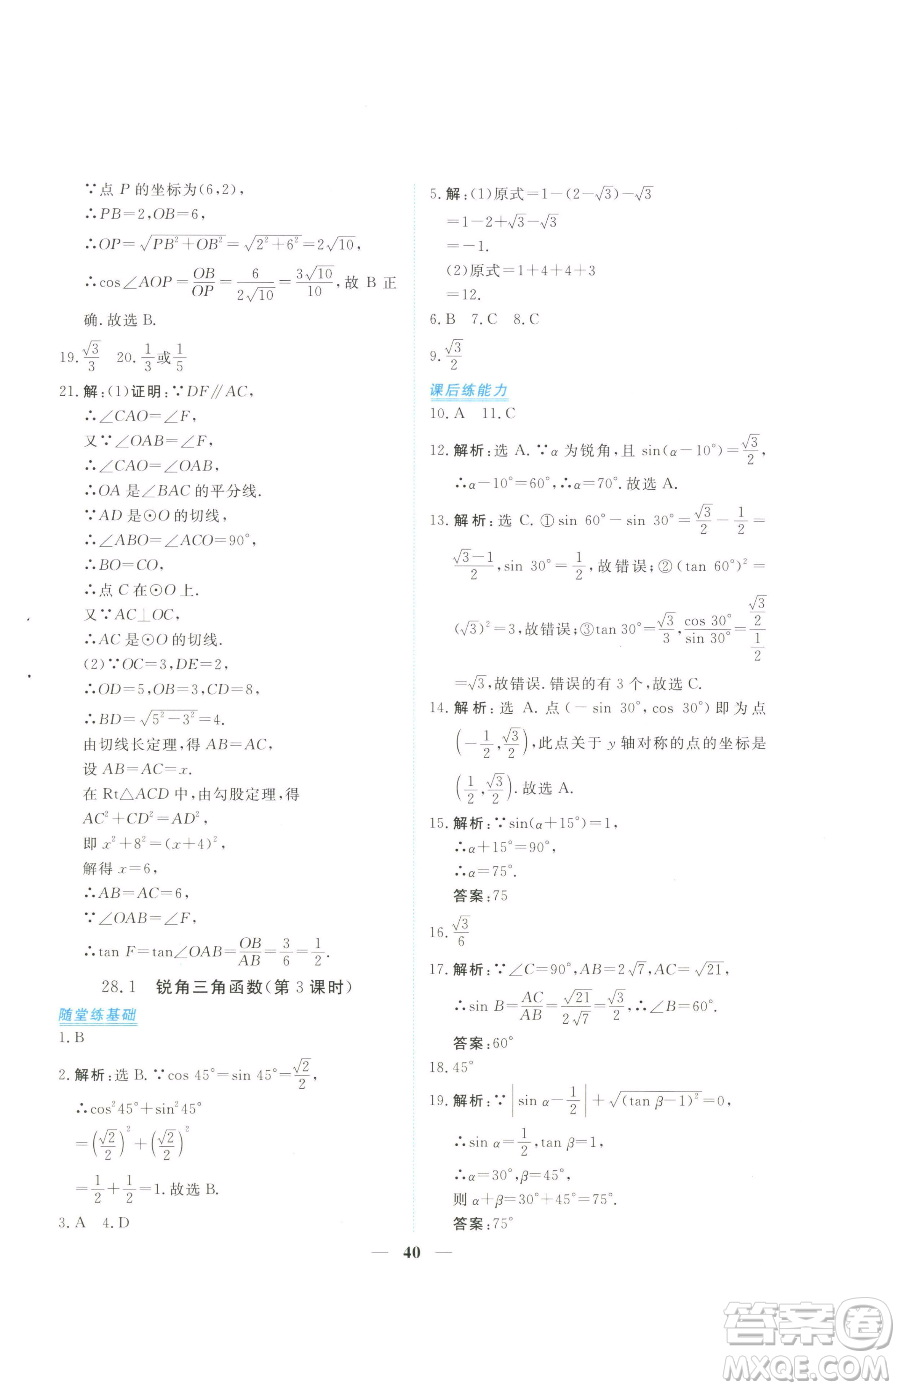 ∵点 P 的坐标为(6,2),
∴PB=2,OB=6,
∴OP=√(PB²+OB²)=√(2²+6²)=2√10,
∴cos∠AOP=OB/OP=6/(2√10)=3√10/10,故 B 正
确.故选 B.
19.√3/3 20.1/3或1/5
21.解:(1)证明:∵DF∥AC,
∴∠CAO=∠F,
又∵∠OAB=∠F,
∴∠CAO=∠OAB,
∴OA 是∠BAC 的平分线.
∵AD 是⊙O 的切线,
∴∠ABO=∠ACO=90°,
∴BO=CO,
∴点 C 在⊙O 上.
又∵AC⊥OC,
∴AC 是⊙O 的切线.
(2)∵OC=3,DE=2,
∴OD=5,OB=3,CD=8,
∴BD=√(5²-3²)=4.
由切线长定理,得 AB=AC,
设 AB=AC=x.
在 Rt△ACD 中,由勾股定理,得
AC²+CD²=AD²,
即 x²+8²=(x+4)²,
解得 x=6,
∴AB=AC=6,
∵∠OAB=∠F,
∴tan F=tan∠OAB=OB/AB=3/6=1/2.
28.1 锐角三角函数(第 3 课时)
随堂练基础
1.B
2.解析:选 B.∵cos 45°=sin 45°=√2/2,
∴cos²45°+sin²45°
=(√2/2)²+(√2/2)²
=1/2+1/2=1.故选 B.
3.A 4.D
5.解:(1)原式=1-(2-√3)-√3
=1-2+√3-√3
=-1.
(2)原式=1+4+4+3
=12.
6.B 7.C 8.C
9.√3/2
课后练能力
10.A 11.C
12.解析:选 A.∵α 为锐角,且 sin(α-10°)=√3/2,
∴α-10°=60°,∴α=70°.故选 A.
13.解析:选 C.①sin 60°-sin 30°=√3/2-1/2=
(√3-1)/2,sin 30°=1/2,故错误;②(tan 60°)²=
(√3)²=3,故错误;③tan 30°=√3/3,cos 30°/sin 30°=(√3/2)/(1/2)
=√3,故错误.错误的有 3 个,故选 C.
14.解析:选 A.点(-sin 30°,cos 30°)即为点
(-1/2,√3/2),此点关于 y 轴对称的点的坐标是
(1/2,√3/2).故选 A.
15.解析:∵sin(α+15°)=1,
∴α+15°=90°,
∴α=75°.
答案:75
16.√3/6
17.解析:∵∠C=90°,AB=2√7,AC=√21,
∴sin B=AC/AB=√21/(2√7)=√3/2,∴∠B=60°.
答案:60°
18.45°
19.解析:∵|sin α-1/2|+√((tan β-1)²)=0,
∴sin α=1/2,tan β=1,
∴α=30°,β=45°,
则 α+β=30°+45°=75°.
答案:75°
— 40 —
答案圈
MXQE.COM